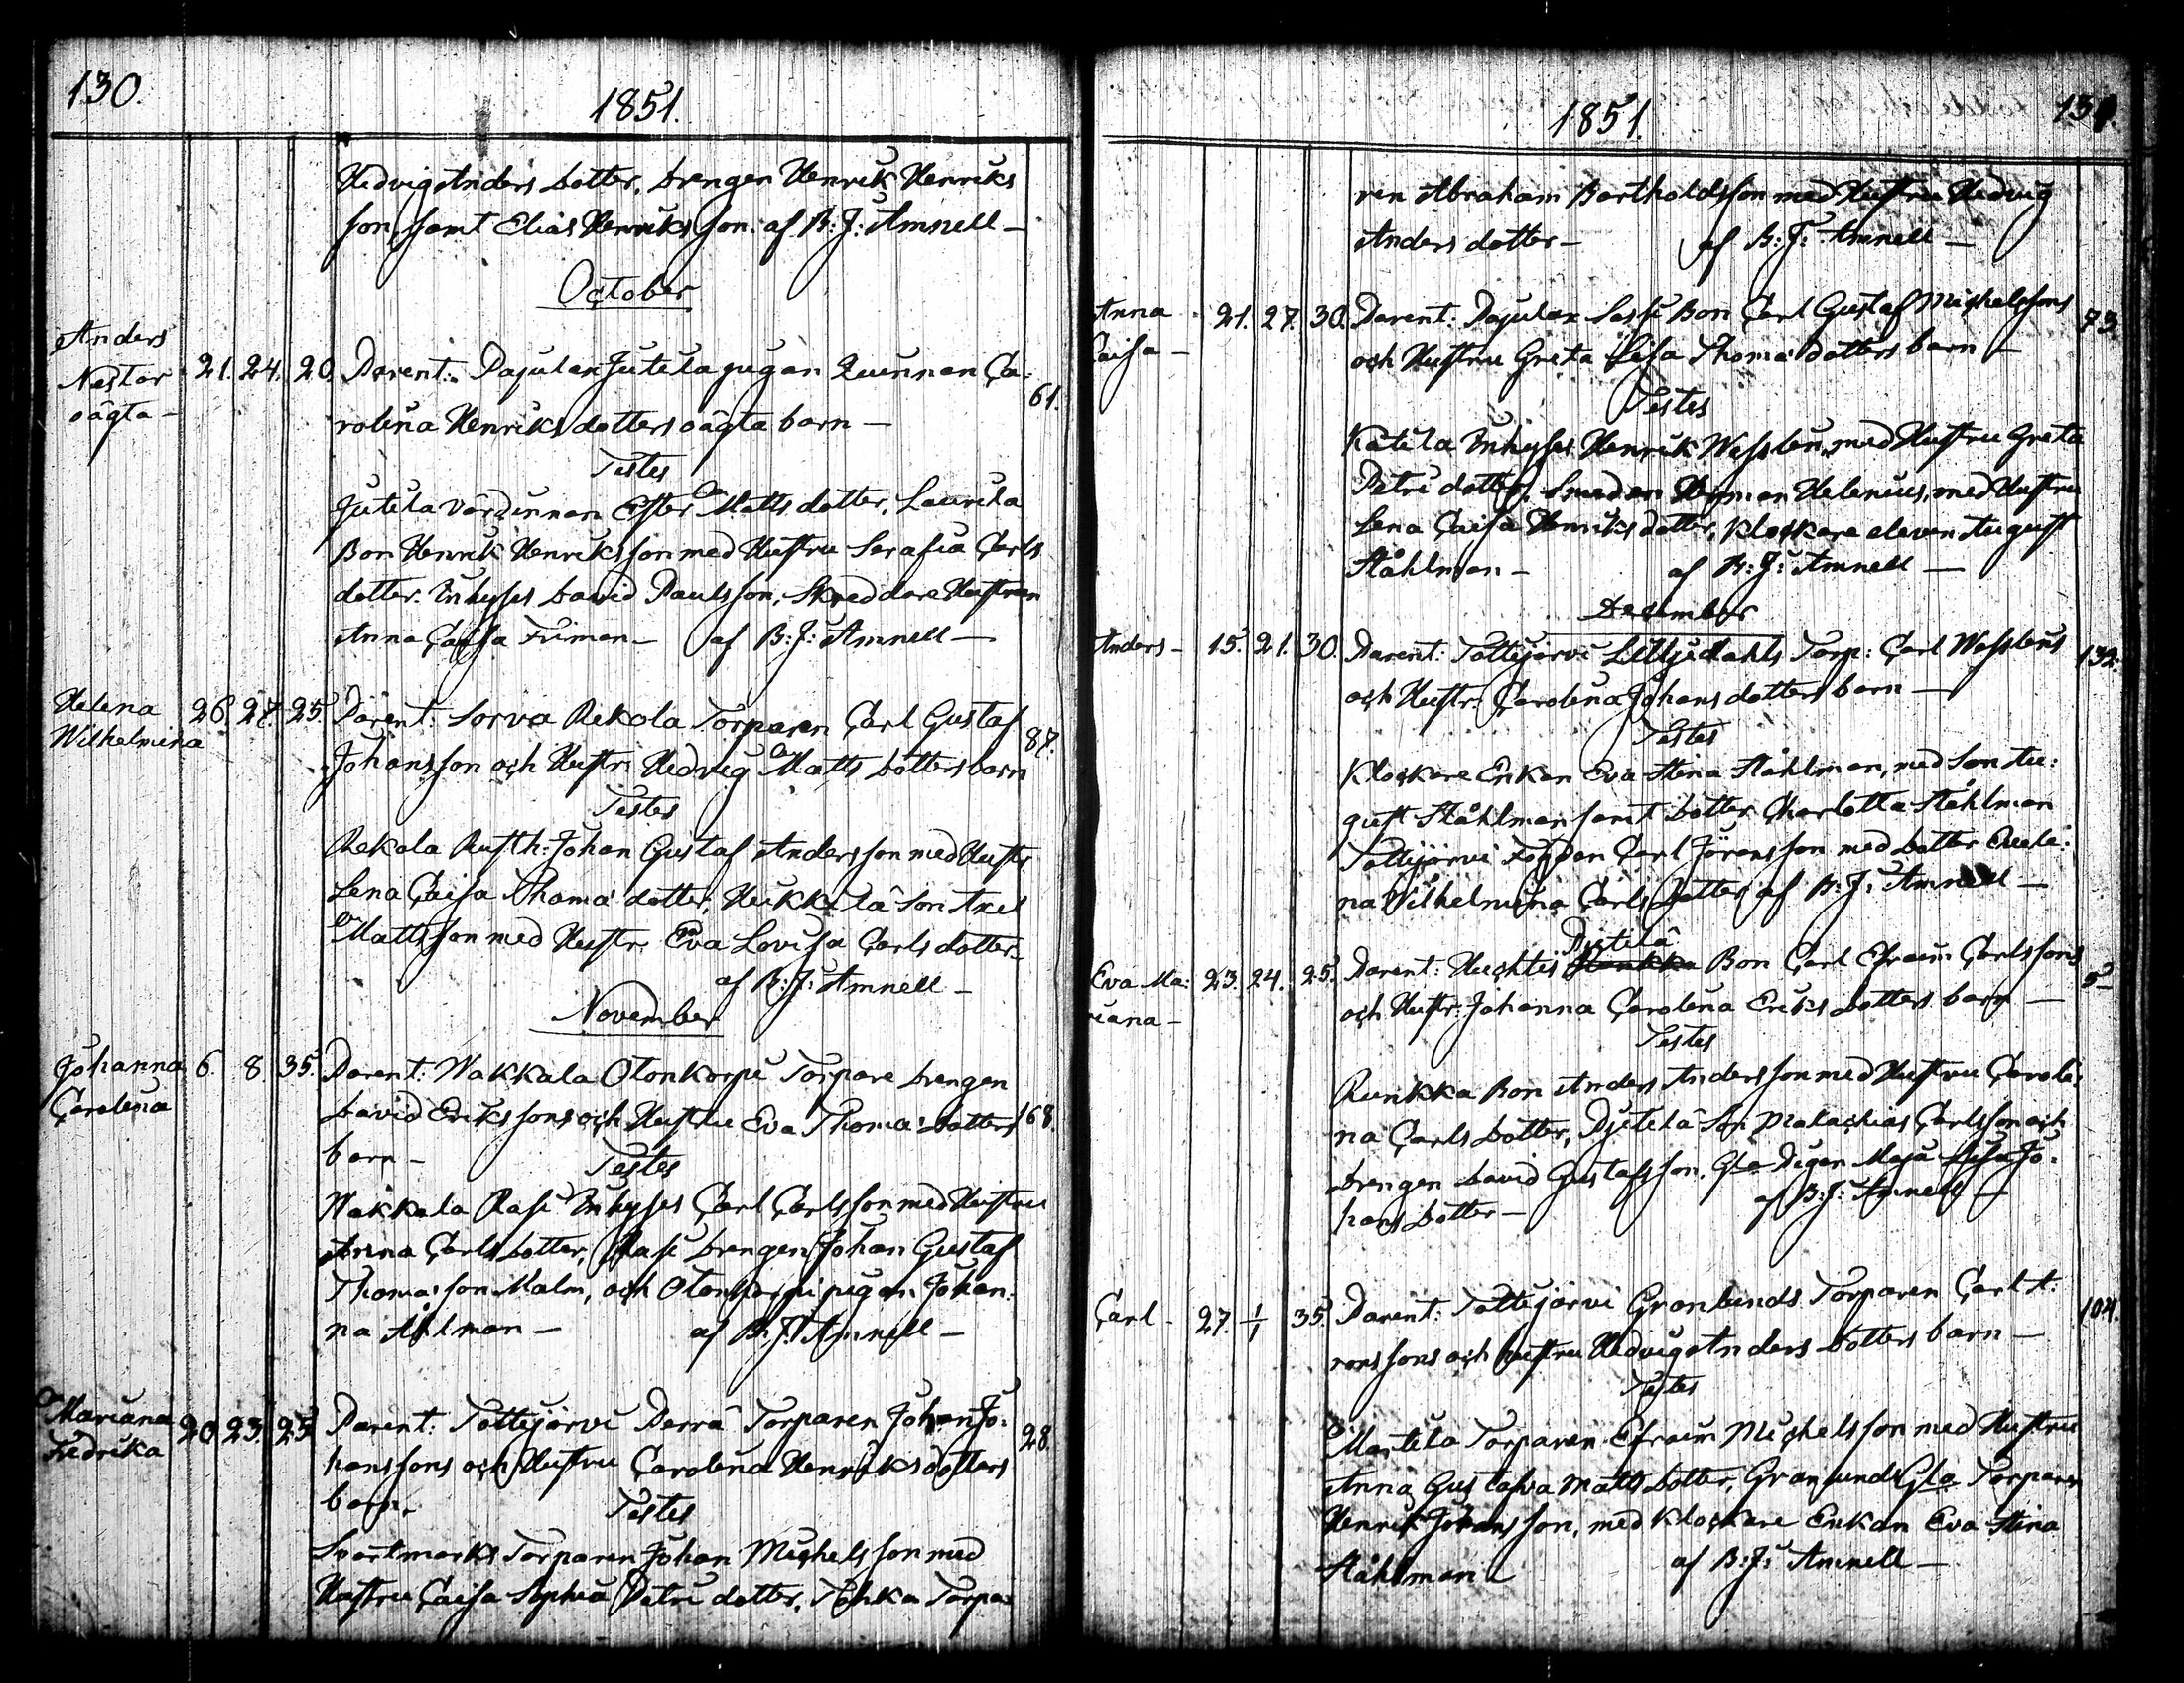 130.
1851.
Hedvig Anders dotter, drengen Henrik Henriks
son, samt Elias Henriks son. af B: J: Amnell –
October
Anders
Nestor
oägta –
21. 24. 20. Parent: Pajulax Jutila pigan Qvinnan Ca:
rolina Henriks dotters oägta barn –
61.
Testes
Jutila värdinnan Ester Matts dotter, Laurila
Bon Henrik Henriksson med Hustru Serafia Carls
dotter. Inhyses David Paulsson, Skreddare Hustrun
Anna Caisa Friman – af B: J: Amnell –
Helena
Wilhelmina
26. 27. 25. Parent: Sorva Rekola Torparen Carl Gustaf
Johansson och Hustr: Hedvig Matts dotters barn
87.
Testes
Rekola Rusth: Johan Gustaf Andersson med Hustr:
Lena Caisa Thomæ dotter, Heikkilä Son Axel
Mattsson med Hustr. Eva Lovisa Carls dotter –
af B: J: Amnell –
November
Johanna
Carolina
6. 8. 35. Parent: Wakkala Otonkorpi Torpare drengen
David Erikssons och Hustru Eva Thomæ dotters
168.
barn –
Testes
Wakkala Rasi Inhyses Carl Carlsson med Hustru
Anna Carls dotter, Rasi drengen Johan Gustaf
Thomæ son Malm, och Otonkorpi pigan Johan:
na Ahlman – af B: J: Amnell –
Mariana
Fredrika
20. 23. 25. Parent: Tottijärvi Perrä Torparen Johan Jo:
hanssons och Hustru Carolina Henriks dotters
28.
barn.
Testes
Svartmarks Torparen Johan Michelsson med
Hustru Caisa Sophia Petri dotter, Torpa
1851.
131.
ren Abraham Bartholdsson med Hustru Hedvig
Anders dotter – af B: J: Amnell –
Anna
Caisa –
21. 27. 30. Parent: Pajulax Sassi Bon Carl Gustaf Michelssons
och Hustru Greta Lisa Thomæ dotters barn –
73.
Testes
Katila Inhyses Henrik Wesslen, med Hustru Greta
Petri dotter, Smeden Herman Helenius, med Hustru
Lena Caisa Henriks dotter, Klockare eleven August
Ståhlman – af B: J: Amnell –
December
Anders – 15. 21. 30. Parent: Tottijärvi Liljedahls Torp: Carl Wesslens
132.
och Hustr: Carolina Johans dotters barn –
Testes
Klockare Enkan Eva Stina Ståhlman, med Son Au:
gust Ståhlman samt dotter Charlotta Ståhlman
Tottijärvi Fogden Carl Göransson med dotter Eveli:
na Vilhelmina Carls dotter af B: J: Amnell –
Pietilä
Eva Ma:
riana –
23. 24. 25. Parent: Huchtis Bon Carl Efraim Carlssons
5
och Hustr: Johanna Carolina Eriks dotters barn –
Testes
Runkka Bon Anders Andersson med Hustru Caroli:
na Carls dotter, Pjetilä Son Malachias Carlsson och
drengen David Gustafsson. Gla Pigan Maja Jo:
hans dotter – af B: J: Amnell –
Carl – 27. 1/1 35. Parent: Tottijärvi Granlunds Torparen Carl A:
104.
ronssons och Hustru Hedvig Anders dotters barn –
Testes
Martila Torparen Efraim Michelsson med Hustru
Anna Gustafva Matts dotter, Granlunds Gla Torparen
Henrik Johansson, med Klockare Enkan Eva Stina
Ståhlman – af B: J: Amnell –